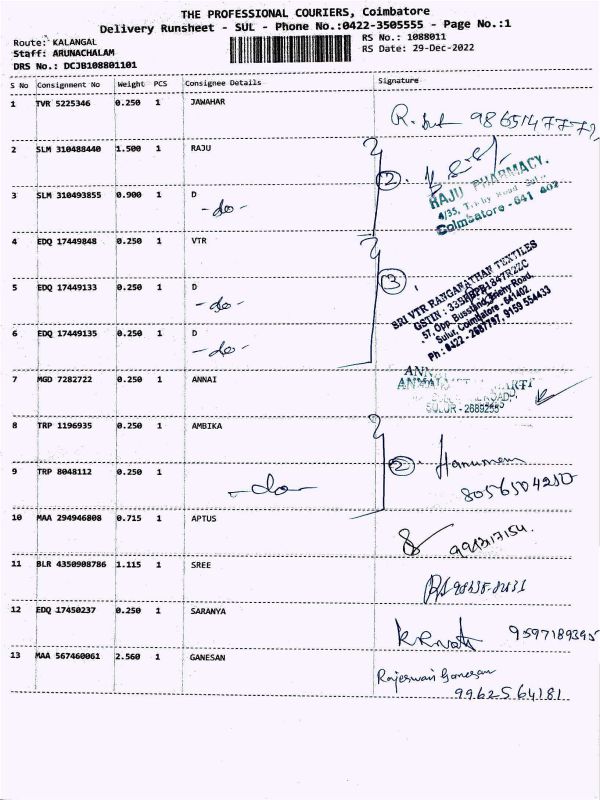 THE PROFESSIONAL COURIERS, Coimbatore
Delivery Runsheet - SUL - Phone No.:0422-3505555 - Page No.:1
Route: KALANGAL
Staff: ARUNACHALAM
DRS No.: DCJB108801101
RS No.: 1088011
RS Date: 29-Dec-2022
S No Consignment No Weight PCS Consignee Details Signature
1 TVR 5225346 0.250 1 JAWAHAR
2 SLM 310488440 1.500 1 RAJU
2.
RAJU PHARMACY.
4/35, Trichy Road
Coimbatore - 641 402
3 SLM 310493855 0.900 1 D
-do-
4 EDQ 17449848 0.250 1 VTR
3
SRI VTR RANGANATHAN TEXTILES
57, Opp. Busstand, Trichy Road,
Sulur, Coimbatore - 641402.
Ph : 0422 - 2687797, 9159 554433
5 EDQ 17449133 0.250 1 D
-do-
6 EDQ 17449135 0.250 1 D
-do-
7 MGD 7282722 0.250 1 ANNAI
SULUR - 2689255
8 TRP 1196935 0.250 1 AMBIKA
2.
8056504250
9 TRP 8048112 0.250 1
-do-
10 MAA 294946808 0.715 1 APTUS
11 BLR 4350908786 1.115 1 SREE
12 EDQ 17450237 0.250 1 SARANYA
9597189395
13 MAA 567460061 2.560 1 GANESAN
Rajeswari Ganesan
9962564181